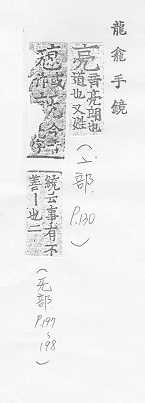 龍龕手鏡
亮
音亮朗也
道也又姓
(亠部 P.130)
或作
統云事有不
善丨也二
(旡部 P.197~198)